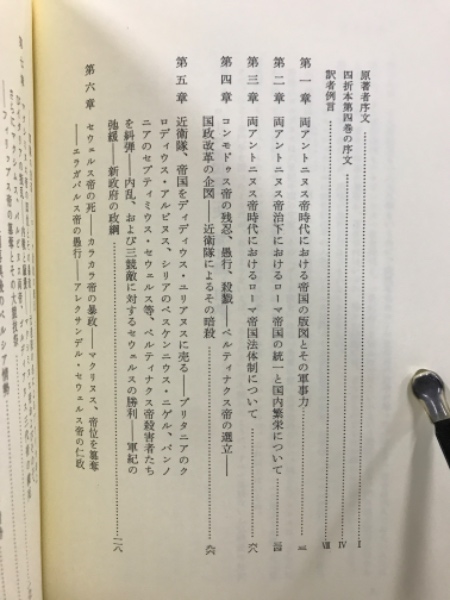 原著者序文……………I
四折本第四巻の序文……………IV
訳者例言……………VII
第一章 両アントニヌス帝時代における帝国の版図とその軍事力……………三
第二章 両アントニヌス帝治下におけるローマ帝国の統一と国内繁栄について……………
第三章 両アントニヌス帝時代におけるローマ帝国法体制について……………六八
第四章 コンモドゥス帝の残忍、愚行、殺戮――ペルティナクス帝の選立――
国政改革の企図――近衛隊によるその暗殺……………
第五章 近衛隊、帝国をディディウス・ユリアヌスに売る――ブリタニアのク
ロディウス・アルビヌス、シリアのペスケンニウス・ニゲル、パンノ
ニアのセプティミウス・セウェルス等、ペルティナクス帝殺害者たち
を糾弾――内乱、および三競敵に対するセウェルスの勝利――軍紀の
弛緩――新政府の政綱……………
第六章 セウェルス帝の死――カラカラ帝の暴政――マクリヌス、帝位を簒奪
――エラガバルス帝の愚行――アレクサンデル・セウェルス帝の仁政
第七章